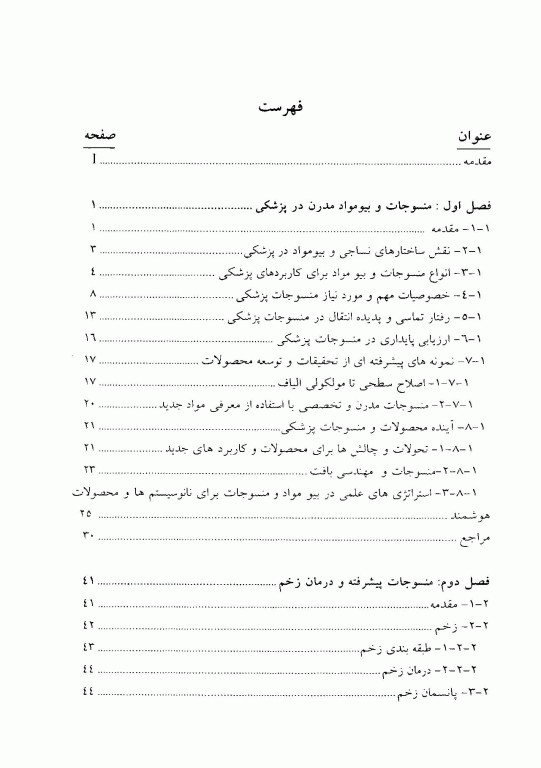 فهرست
عنوان صفحه
مقدمه ........ I
فصل اول : منسوجات و بیومواد مدرن در پزشکی ........ ۱
۱-۱- مقدمه ........ ۱
۱-۲- نقش ساختارهای نساجی و بیومواد در پزشکی ........ ۳
۱-۳- انواع منسوجات و بیو مواد برای کاربردهای پزشکی ........ ٤
۱-٤- خصوصیات مهم و مورد نیاز منسوجات پزشکی ........ ۸
۱-۵- رفتار تماسی و پدیده انتقال در منسوجات پزشکی ........ ۱۳
۱-٦- ارزیابی پایداری در منسوجات پزشکی ........ ۱٦
۱-۷- نمونه های پیشرفته ای از تحقیقات و توسعه محصولات ........ ۱۷
۱-۷-۱- اصلاح سطحی تا مولکولی الیاف ........ ۱۷
۱-۷-۲- منسوجات مدرن و تخصصی با استفاده از معرفی مواد جدید ........ ۲۰
۱-۸- آینده محصولات و منسوجات پزشکی ........ ۲۱
۱-۸-۱- تحولات و چالش ها برای محصولات و کاربرد های جدید ........ ۲۱
۱-۸-۲-منسوجات و مهندسی بافت ........ ۲۳
۱-۸-۳- استراتژی های علمی در بیو مواد و منسوجات برای نانوسیستم ها و محصولات
هوشمند ........ ۲۵
مراجع ........ ۳۰
فصل دوم: منسوجات پیشرفته و درمان زخم ........ ٤۱
۲-۱- مقدمه ........ ٤۱
۲-۲- زخم ........ ٤۲
۲-۲-۱- طبقه بندی زخم ........ ٤۳
۲-۲-۲- درمان زخم ........ ٤٤
۲-۳- پانسمان زخم ........ ٤٤